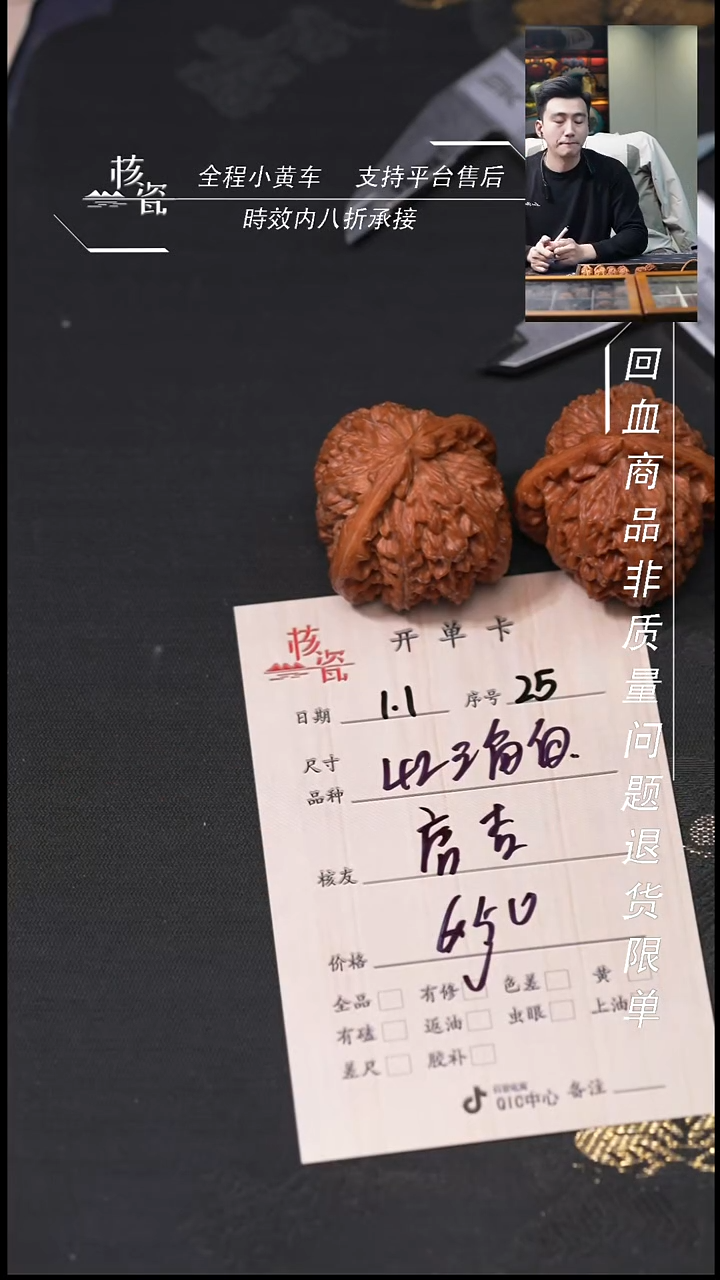 核瓷
全程小黄车 支持平台售后
時效内八折承接
回血商品非质量问题退货限单
核瓷 开单卡
日期 1.1 序号 25
尺寸
品种 42三角伯.
核友 启吉
价格 650
全品 有修 色差 黄
有磕 返油 虫眼 上油
差尺 胶补
QIC中心 备注